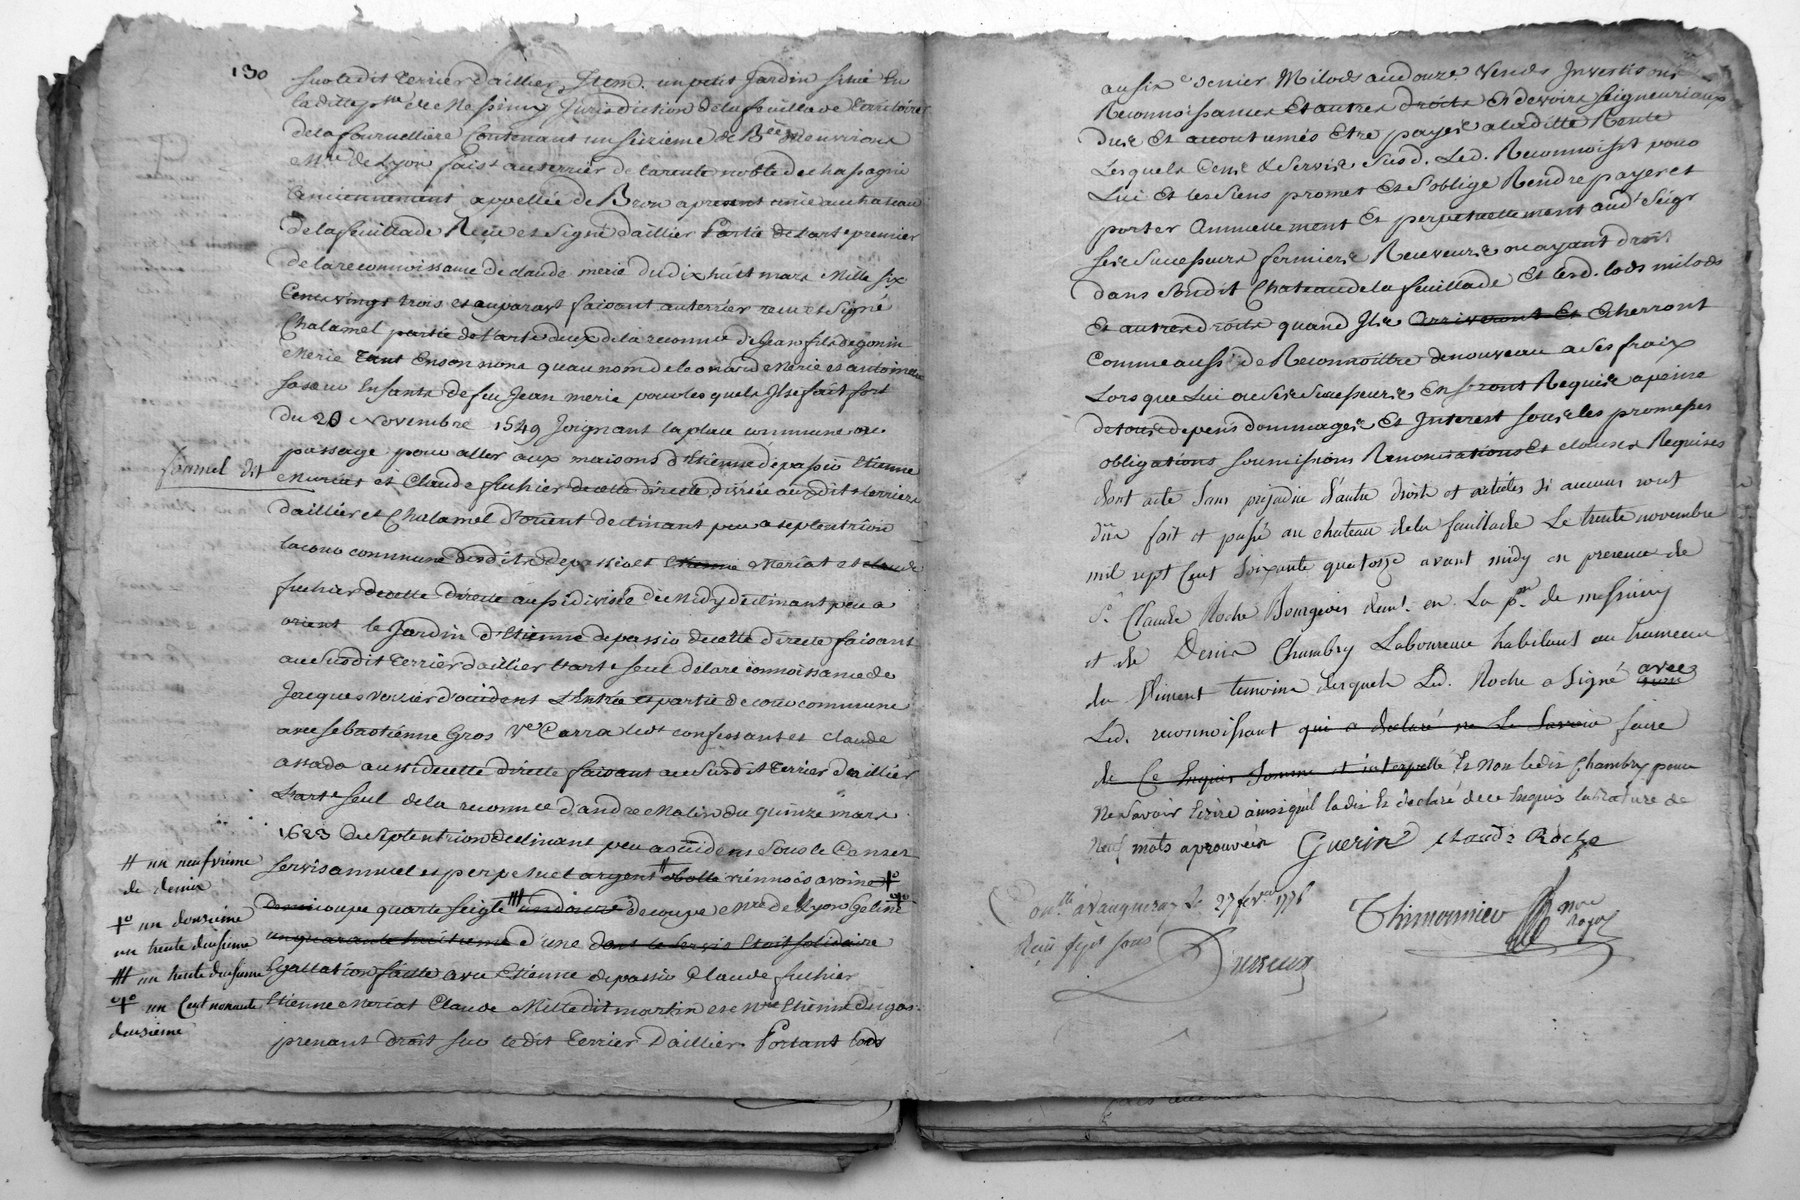 130
sur ledit terrier d'aillier Item un petit Jardin situé En
la ditte psse de Messimy Jurisdiction de la feuillade territoire
de la fournelliere Contenant un seizieme de Bée ou environs
Mre de Lyon faist au terrier de la rente noble de chapagni
anciennement appellée de Bron apresent unie au chateau
de la feuillade Reçu et Signé d'aillier Partie de l'arte premier
de la reconnoissance de claude merie du dix huit mars Mille six
Cent vingt trois et auparavt faisant au terrier reçu et Signé
Chalamel partie de l'arte deux de la reconnce de Jean fils de gonin
Merie tant En son nom qu'au nom de leonard Merie et antoinette
sa seur Enfants de feu Jean merie pour lesquels Il se fait fort
du 20 Novembre 1549 Joignant la place commune ou
passage pour aller aux maisons d'Etienne depassio Etienne
formel dit
Muriat et Claude fuchier de cette directe divisée auxdits terriers
d'aillier et Chalamel d'orient declinant peu a septentrion
la cour commune desdits depassio et Etienne Meriat et claude
fuchier de cette directe aussi divisée de Midy declinant peu a
orient le Jardin d'Etienne depassio de cette directe faisant
au susdit terrier d'aillier l'arte seul de la reconnoissance de
Jacques verrier d'occident L'Entrée et partie de cour commune
avec sebastienne Gros Ve Carra ledt confessant et claude
assada aussi de cette directe faisant au susdit terrier d'aillier
L'arte seul de la reconnce d'andre Molin du quinze mars
1623 De septentrion declinant peu a occident Sous le Cens et
servis annuel et perpetuel argent # obolle viennois avoine
Demi coupe quarte seigle ## un douze de coupe Mre de Lyon Geline
un quarante huitieme d'une dont le servis Etoit solidaire
Egallation faitte avec Etienne depassio Claude fuchier
Etienne Meriat Claude Mille dit martin et Mre Etienne Dugas
prenant droit sur le dit terrier D'aillier Portant lods
# un neufvieme
de denier
un douzieme
un trente deuxieme
## un trente deuxieme
un Cent nonante
deuxieme
au six e denier Milods au douze vends Investisons
Reconnoissances Et autres droits Et devoirs seigneuriaux
Dus Et accoutumés Etre payés a la ditte Rente
Lesquels Cens & Servis susd. Led. Reconnoisst pour
Lui Et les siens promet Et s'oblige Rendre payer et
porter Annuellement Et perpetuellement aud. Seigr
ses successeurs fermiers Receveurs ou ayant droit
dans Sondit Chateau de la feuillade Et lesd. lods milods
Et autres droits quand Ils arriveront Et Echerront
Comme aussi de Reconnoittre de nouveau a ses fraix
Lorsque Lui ou ses successeurs En seront Requis a peine
de tous depens dommages Et Interest sous les promesses
obligations soumissions Renonciations Et clauses Requises
dont acte sans prejudice d'autre droits et articles si aucuns sont
dus fait et passé au chateau de la feuillade Le trente novembre
mil sept Cent soixante quatorze avant midy en presence de
Sr Claude Roche Bourgeois demt. en La psse de messimy
et de Denis Chambry Laboureur habitant au hameau
du Niment temoins desquels Led. Roche a signé avec
Led. reconnoissant qui a declaré ne Le savoir faire
de Ce Enquis Sommé et interpellé Et non ledit Chambry pour
Ne savoir Ecrire ainsi qu'il la dit Et declaré de ce Enquis la rature de
Neuf mots approuvéés Guerin Claude Roche
Conlle a vaugneray Le 27 fevrer 1776
Reçu sept sous
Thimonnier nre royal